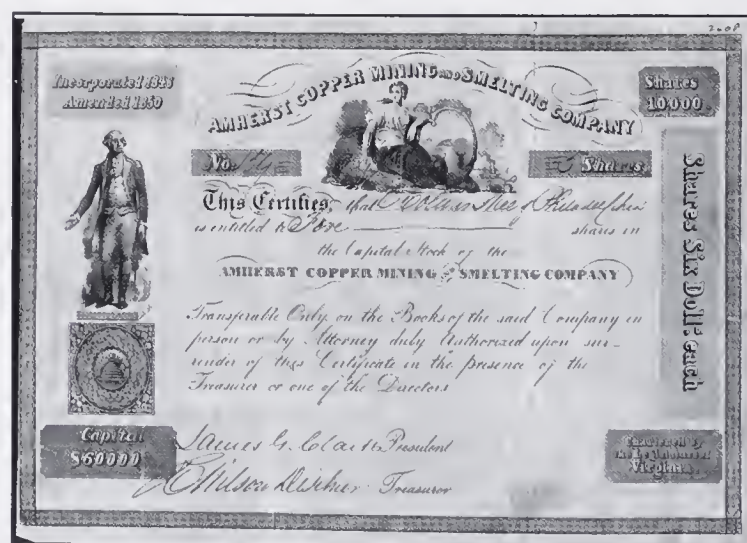 Incorporated 1848
Amended 1850
AMHERST COPPER MINING AND SMELTING COMPANY
Shares
10000.
No.
5 Shares
This Certifies, that of Philadelphia
is entitled to Five shares in
the Capital Stock of the
AMHERST COPPER MINING AND SMELTING COMPANY
Transferable Only on the Books of the said Company in
person or by Attorney duly Authorized upon sur-
render of this Certificate in the presence of the
Treasurer or one of the Directors
Shares Six Doll: each
Capital
$60000
James G. Clark President
Wilson Treasurer
Chartered by
the Legislature of
Virginia.